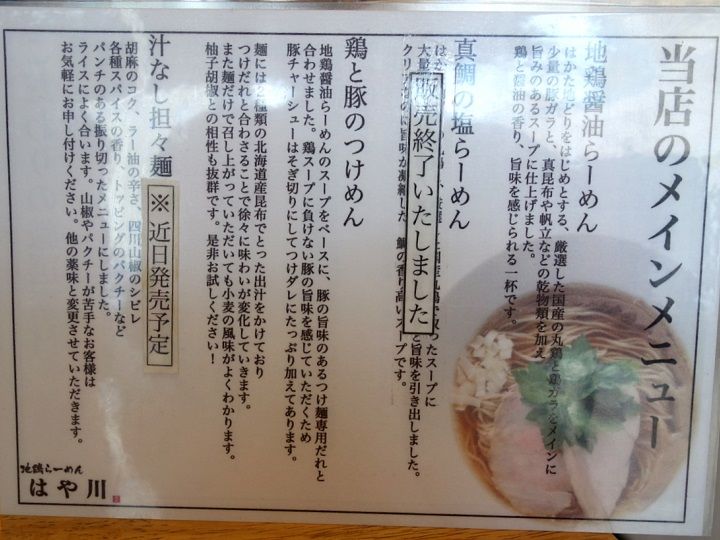 当店のメインメニュー
地鶏醤油らーめん
はかた地どりをはじめとする、厳選した国産の丸鶏と鶏ガラをメインに
少量の豚ガラと、真昆布や帆立などの乾物類を加え
旨みのあるスープに仕上げました。
鶏と醤油の香り、旨味を感じられる一杯です。
真鯛の塩らーめん
販売終了いたしました
ったスープに
大量
と旨味を引き出しました。
クリア
旨味が凝縮した 鯛の香り高いスープです。
鶏と豚のつけめん
地鶏醤油らーめんのスープをベースに、豚の旨味のあるつけ麺専用だれと
合わせました。鶏スープに負けない豚の旨味を感じていただくため
豚チャーシューはそぎ切りにしてつけダレにたっぷり加えてあります。
麺には2種類の北海道産昆布でとった出汁をかけており
つけだれと合わさることで徐々に味わいが変化していきます。
また麺だけで召し上がっていただいても小麦の風味がよくわかります。
柚子胡椒との相性も抜群です。是非お試しください！
汁なし担々麺
※近日発売予定
胡麻のコク、ラー油の辛さ、四川山椒のシビレ
各種スパイスの香り、トッピングのパクチーなど
パンチのある振り切ったメニューにしました。
ライスによく合います。山椒やパクチーが苦手なお客様は
お気軽にお申し付けください。他の薬味と変更させていただきます。
地鶏らーめん
はや川